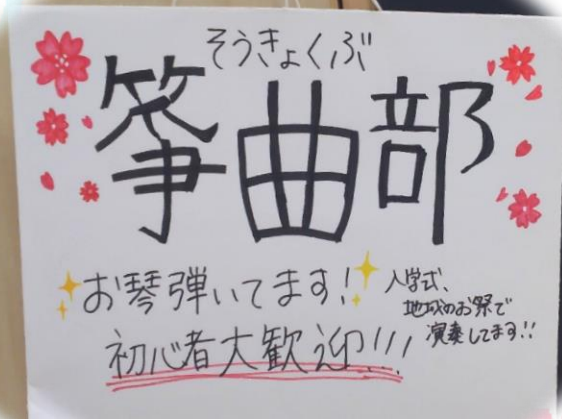 そうきょくぶ
箏曲部
お琴弾いてます!
入学式、
地域のお祭で
演奏してます!!
初心者大歓迎!!!